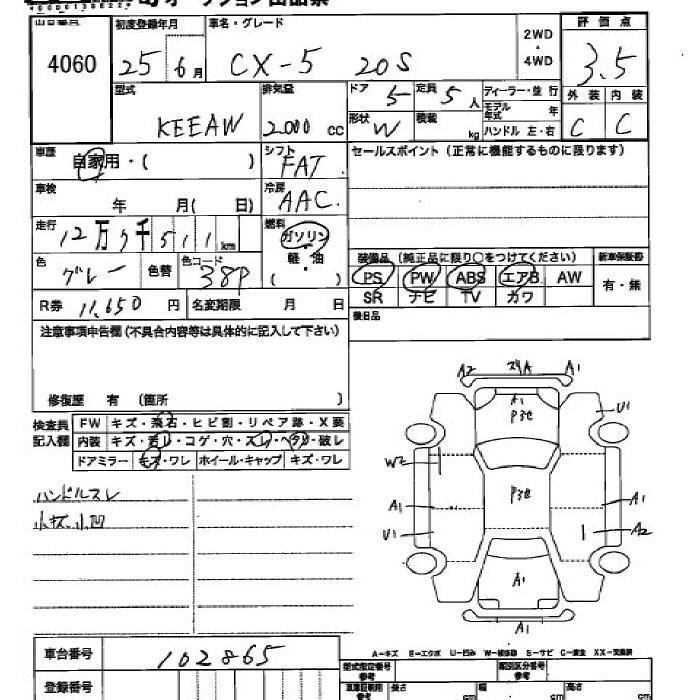 出品番号 初度登録年月 車名・グレード 評価点
4060 25 6月 CX-5 20S 2WD・4WD 3.5
型式 排気量 ドア 5 定員 5人 ディーラー・並行 外装 内装
モデル年式 年
KEEAW 2.000 cc 形状 W 積載 kg ハンドル 左・右 C C
車歴 自家用・( ) シフト FAT セールスポイント(正常に機能するものに限ります)
車検 年 月( 日) 冷房 AAC
走行 12万 千511km 燃料 ガソリン・軽・油 ( )
色 グレー 色替 色コード 38P 装備品(純正品に限り○をつけてください) 新車保証書
PS PW ABS エアB AW 有・無
R券 11,650円 名変期限 月 日 SR ナビ TV カワ
後日品
注意事項申告欄(不具合内容等は具体的に記入して下さい)
修復歴 有 (箇所 )
検査員記入欄 FW キズ・飛石・ヒビ割・リペア跡・X要
内装 キズ・汚レ・コゲ・穴・スレ・ヘタリ・破レ
ドアミラー キズ・ワレ ホイール・キャップ キズ・ワレ
ハンドルスレ
小キズ小凹
A2 A1
A1
P3E
U1
W2
P38
A1 A1
U1 A2
A1
A1
A-キズ E-エクボ U-凹み W-補修跡 S-サビ C-腐食 XX-交換済
車台番号 102865
型式指定番号 類別区分番号
登録番号 長さ cm 幅 cm 高さ cm